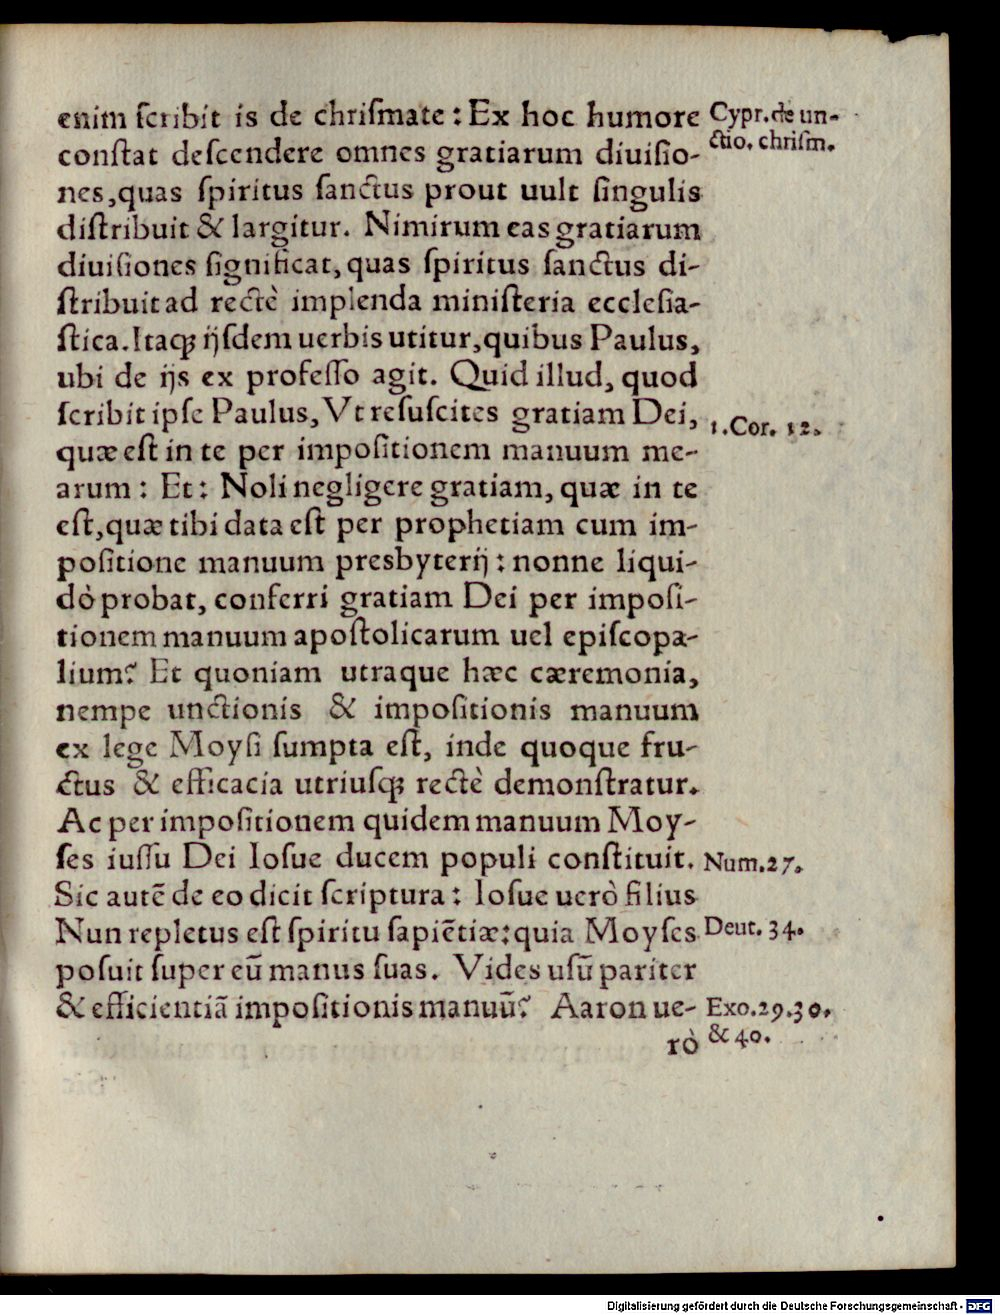 enim ſcribit is de chriſmate: Ex hoc humore
Cypr. de un-
ctio. chriſm.
conſtat deſcendere omnes gratiarum diuiſio-
nes, quas ſpiritus ſanctus prout uult ſingulis
diſtribuit & largitur. Nimirum eas gratiarum
diuiſiones ſignificat, quas ſpiritus ſanctus di-
ſtribuit ad rectè implenda miniſteria eccleſia-
ſtica. Itaqꝫ ijſdem uerbis utitur, quibus Paulus,
ubi de ijs ex profeſſo agit. Quid illud, quod
ſcribit ipſe Paulus, Vt reſuſcites gratiam Dei,
1. Cor. 12.
quæ eſt in te per impoſitionem manuum me-
arum: Et: Noli negligere gratiam, quæ in te
eſt, quæ tibi data eſt per prophetiam cum im-
poſitione manuum presbyterij: nonne liqui-
dò probat, conferri gratiam Dei per impoſi-
tionem manuum apoſtolicarum uel epiſcopa-
lium? Et quoniam utraque hæc cæremonia,
nempe unctionis & impoſitionis manuum
ex lege Moyſi ſumpta eſt, inde quoque fru-
ctus & efficacia utriuſqꝫ rectè demonſtratur.
Ac per impoſitionem quidem manuum Moy-
ſes iuſſu Dei Ioſue ducem populi conſtituit.
Num. 27.
Sic autẽ de eo dicit ſcriptura: Ioſue uerò filius
Nun repletus eſt ſpiritu ſapiẽtiæ: quia Moyſes
Deut. 34.
poſuit ſuper eũ manus ſuas. Vides uſũ pariter
& efficientiã impoſitionis manuũ? Aaron ue-
Exo. 29. 30.
& 40.
rò
Digitalisierung gefördert durch die Deutsche Forschungsgemeinschaft - DFG